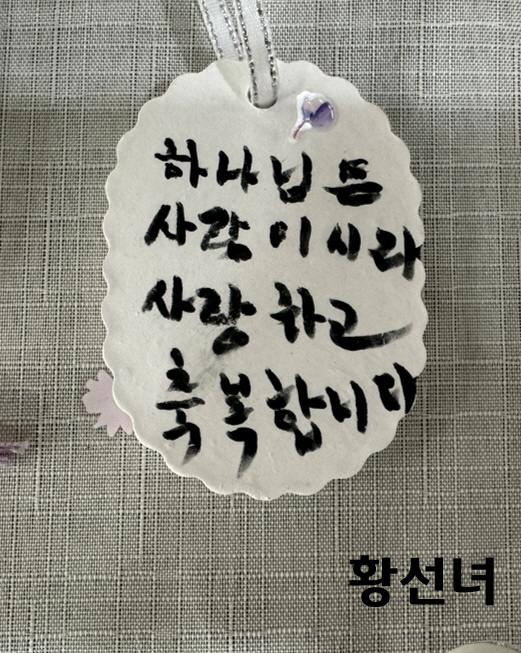 하나님은
사랑이시라
사랑하고
축복합니다
황선녀